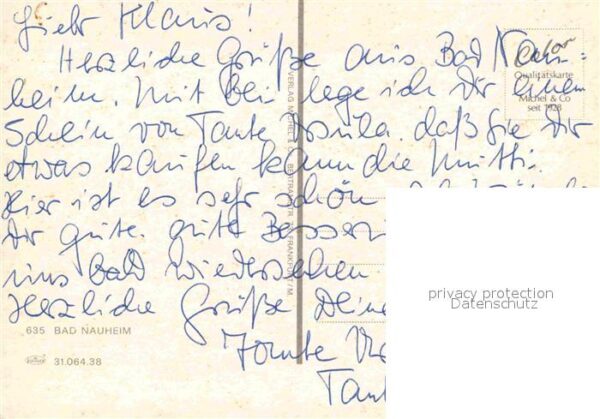 Lieber Klaus!
Herzliche Grüße aus Bad Nau=
heim. Mit bei lege ich Dir einen
Schein von Tante Ursula. daß Sie Dir
etwas kaufen kann die Mutti.
Hier ist es sehr schön
Dir gute. gute Besser
uns bald wiedersehen
Herzliche Grüße Deine
Tante
Tant
Color
Qualitätskarte
Michel & Co
seit 1928
VERLAG MICHEL & CO. FRANKFURT/M.
635 BAD NAUHEIM
31.064.38
privacy protection
Datenschutz